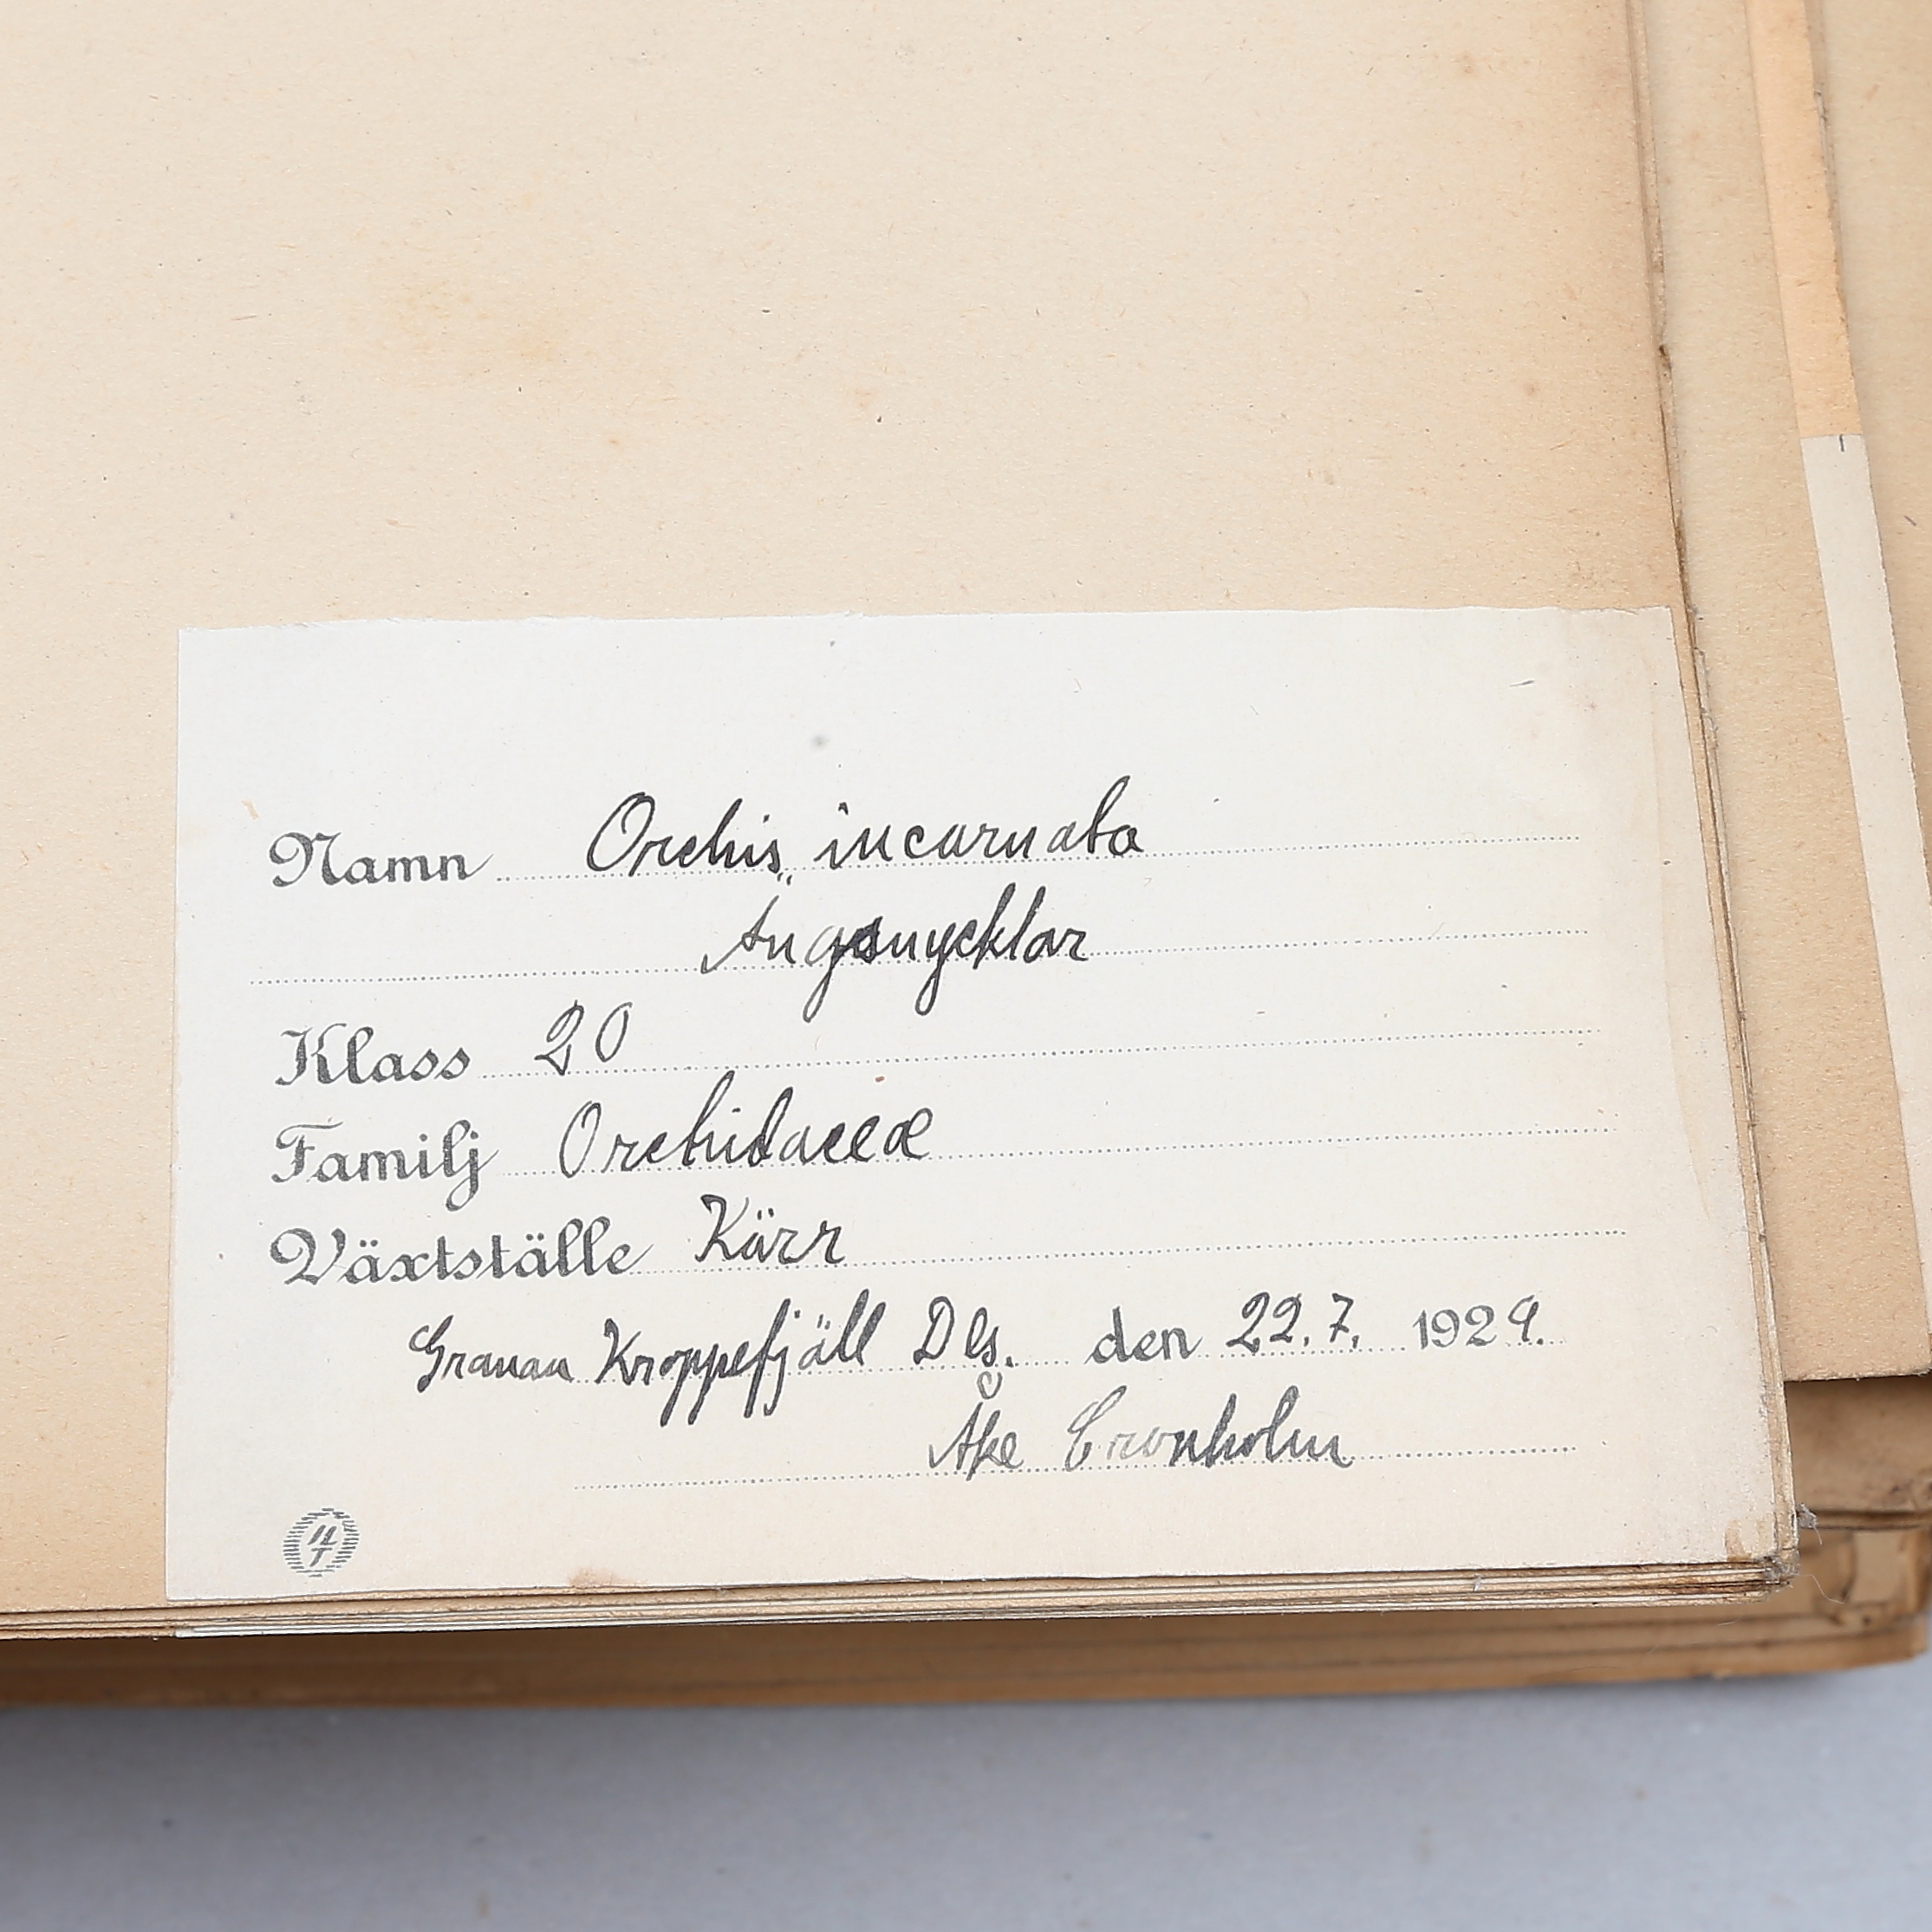 Namn Orchis incarnata
Ängsnycklar
Klass 20
Familj Orchidaceæ
Växtställe Kärr
Granan Kroppefjäll Dls. den 22.7. 1929.
Åke Cronholm